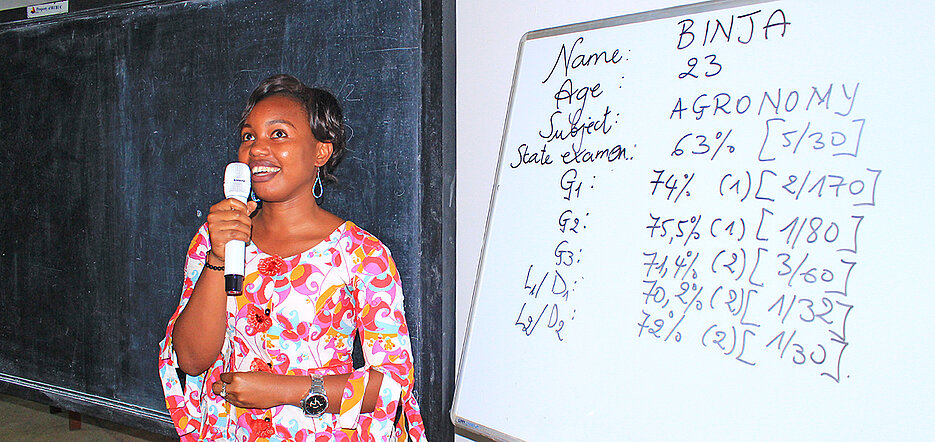 Name: BINJA
Age: 23
Subject: AGRONOMY
State examen: 63% [5/30]
G1: 74% (1) [2/170]
G2: 75,5% (1) [1/80]
G3: 71,4% (2) [3/60]
L1/D1: 70,2% (2) [1/32]
L2/D2: 72% (2) [1/30].